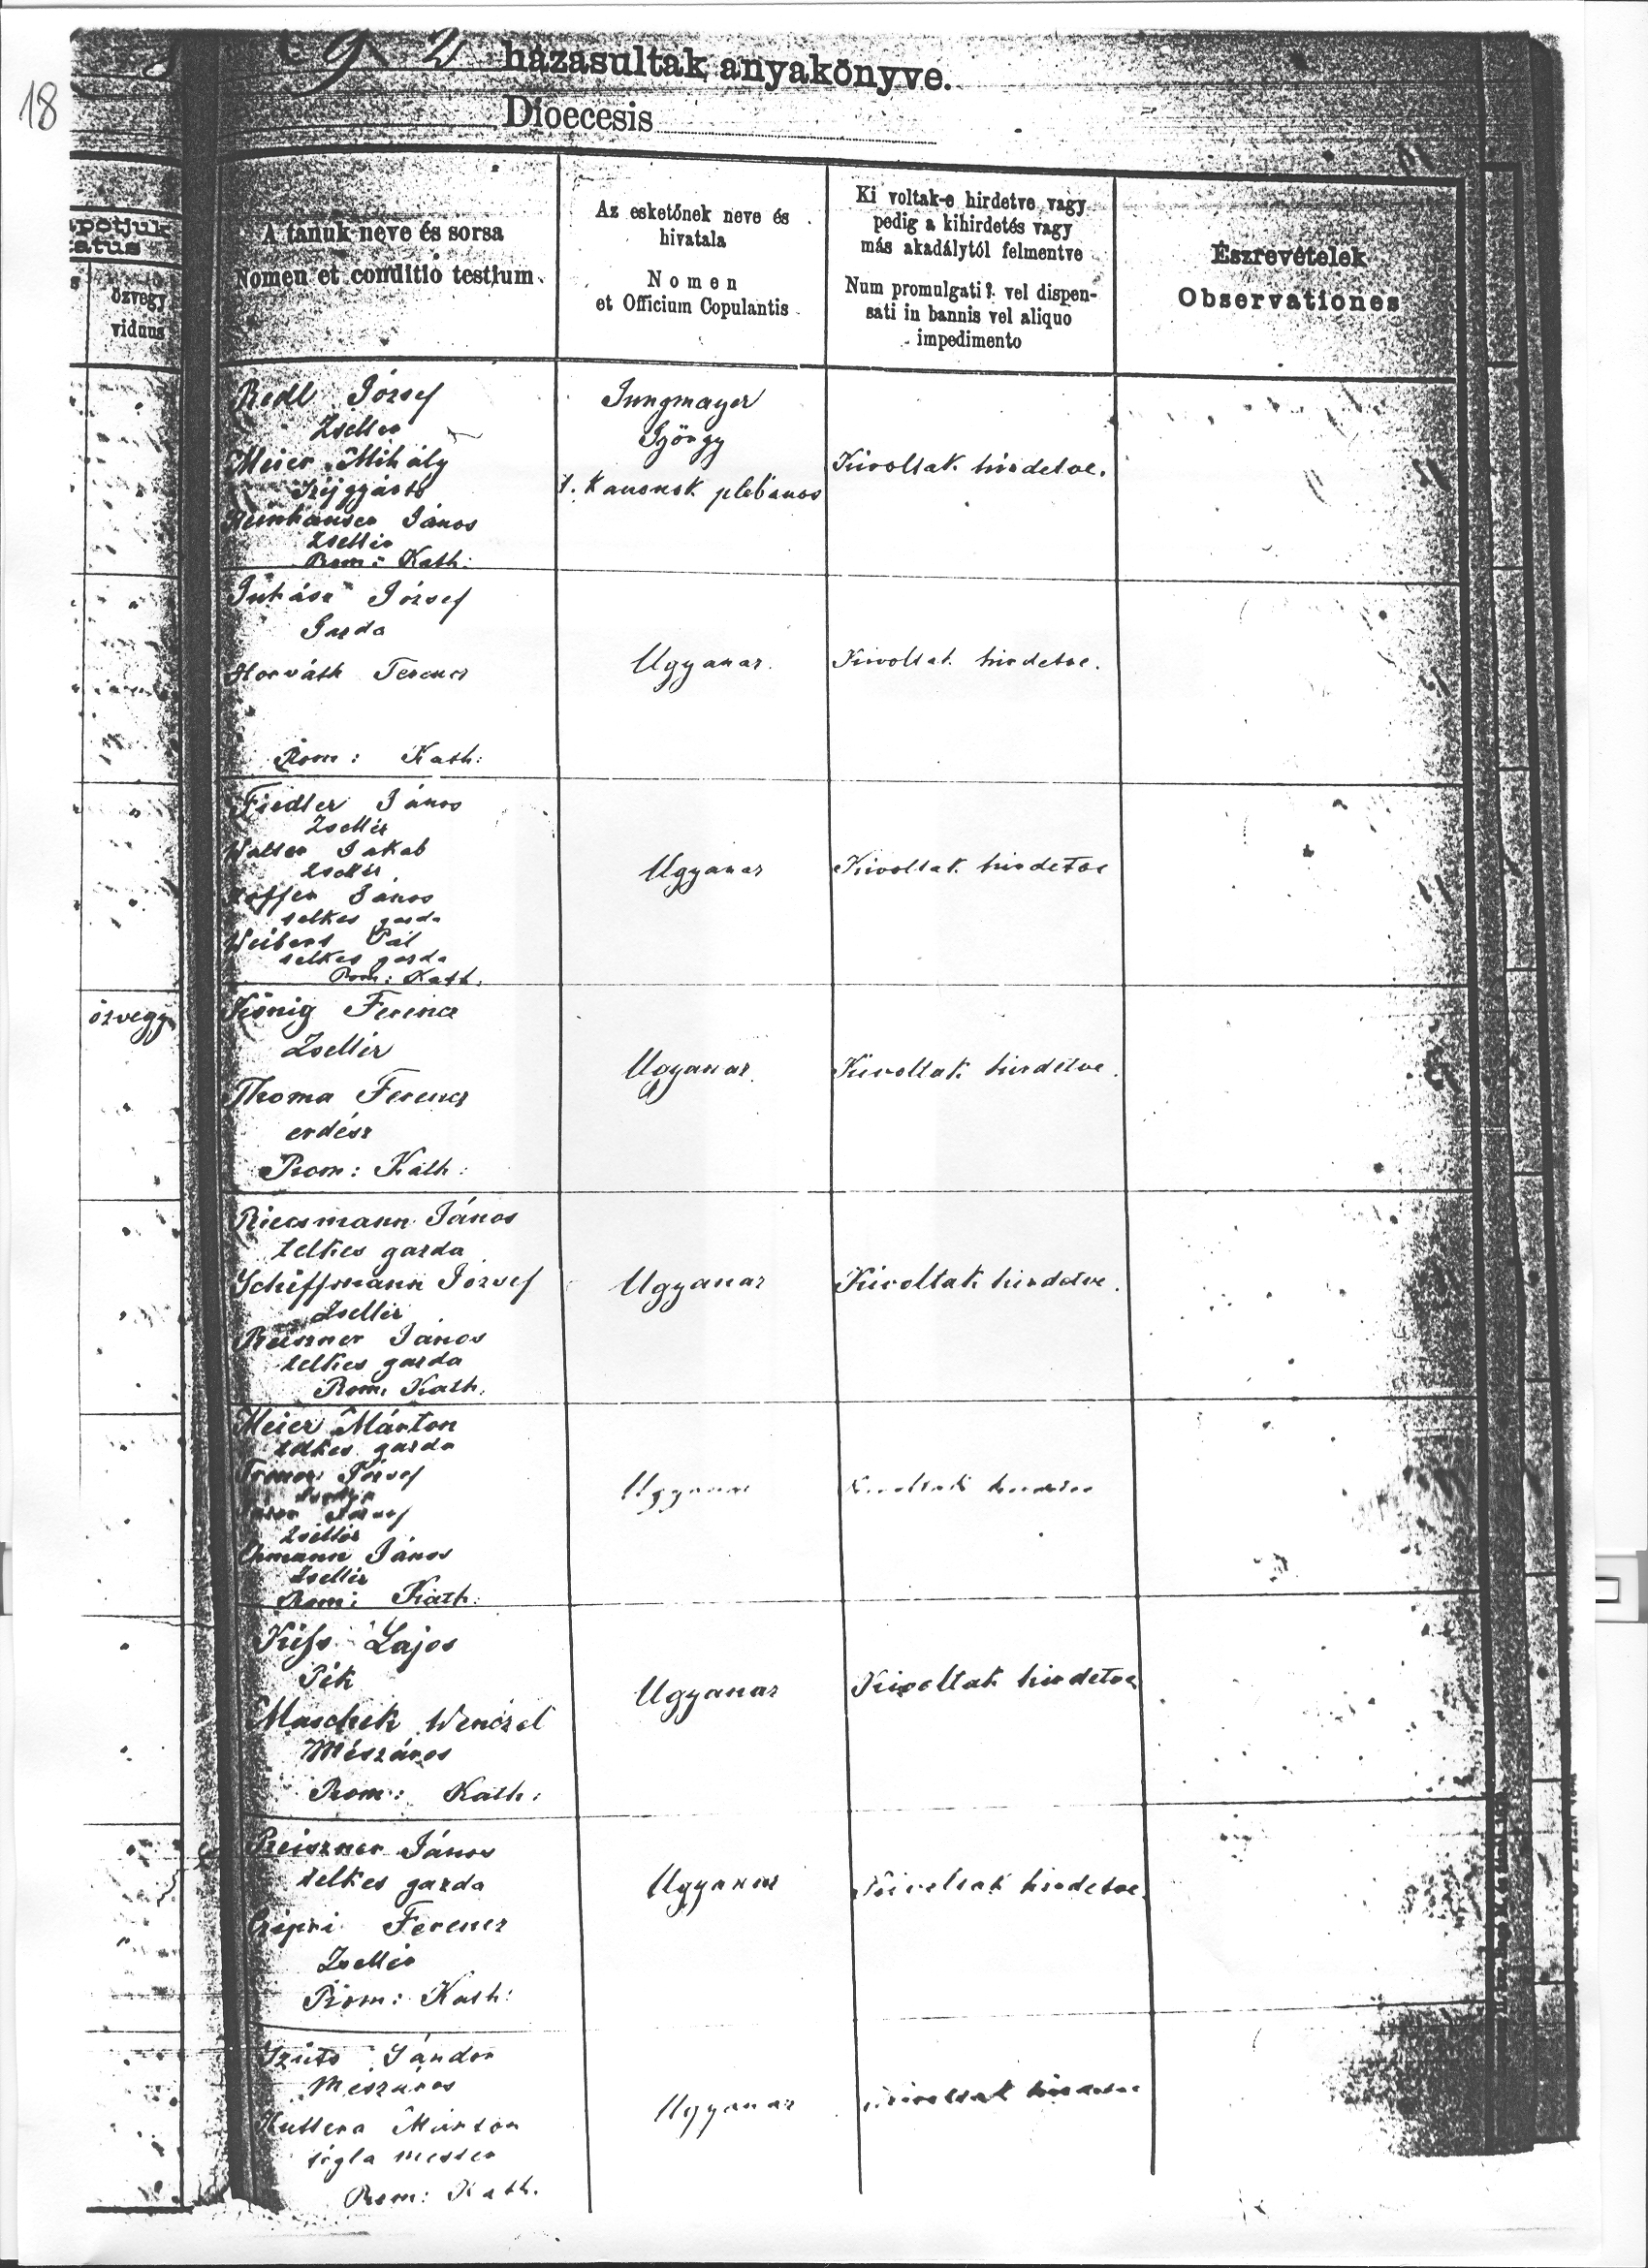 18
92 házasultak anyakönyve.
Dioecesis
özvegy
viduus
A tanuk neve és sorsa
Nomen et conditio testium
Az esketőnek neve és
hivatala
Nomen
et Officium Copulantis
Ki voltak-e hirdetve vagy
pedig a kihirdetés vagy
más akadálytól felmentve
Num promulgati? vel dispen-
sati in bannis vel aliquo
impedimento
Észrevételek
Observationes
Redl József
Zsellér
Meier Mihály
János
Zsellér
Rom: Kath:
Jungmayer
György
t. kanonok plébános
Kivoltak hirdetve.
Juhász József
Gazda
Horváth Ferencz
Rom: Kath:
Ugyanaz
Kivoltak hirdetve.
Fiedler János
Zsellér
Walter Jakab
Zsellér
János
telkes gazda
Pál
telkes gazda
Rom: Kath.
Ugyanaz
Kivoltak hirdetve
özvegy
König Ferencz
Zsellér
Thoma Ferencz
erdész
Rom: Kath:
Ugyanaz
Kivoltak hirdetve.
János
telkes gazda
Schiffmann József
Zsellér
Reiszner János
telkes gazda
Rom. Kath.
Ugyanaz
Kivoltak hirdetve.
Meier Márton
telkes gazda
József
József
Zsellér
János
Zsellér
Rom: Kath:
Ugyanaz
Kivoltak hirdetve
Kiss Lajos
Pék
Maschek Wenczel
Mészáros
Rom: Kath:
Ugyanaz
Kivoltak hirdetve
Reiszner János
telkes gazda
Ferencz
Zsellér
Rom: Kath:
Ugyanaz
Kivoltak hirdetve.
Sándor
Mészáros
Márton
tégla mester
Rom: Kath.
Ugyanaz
Kivoltak hirdetve